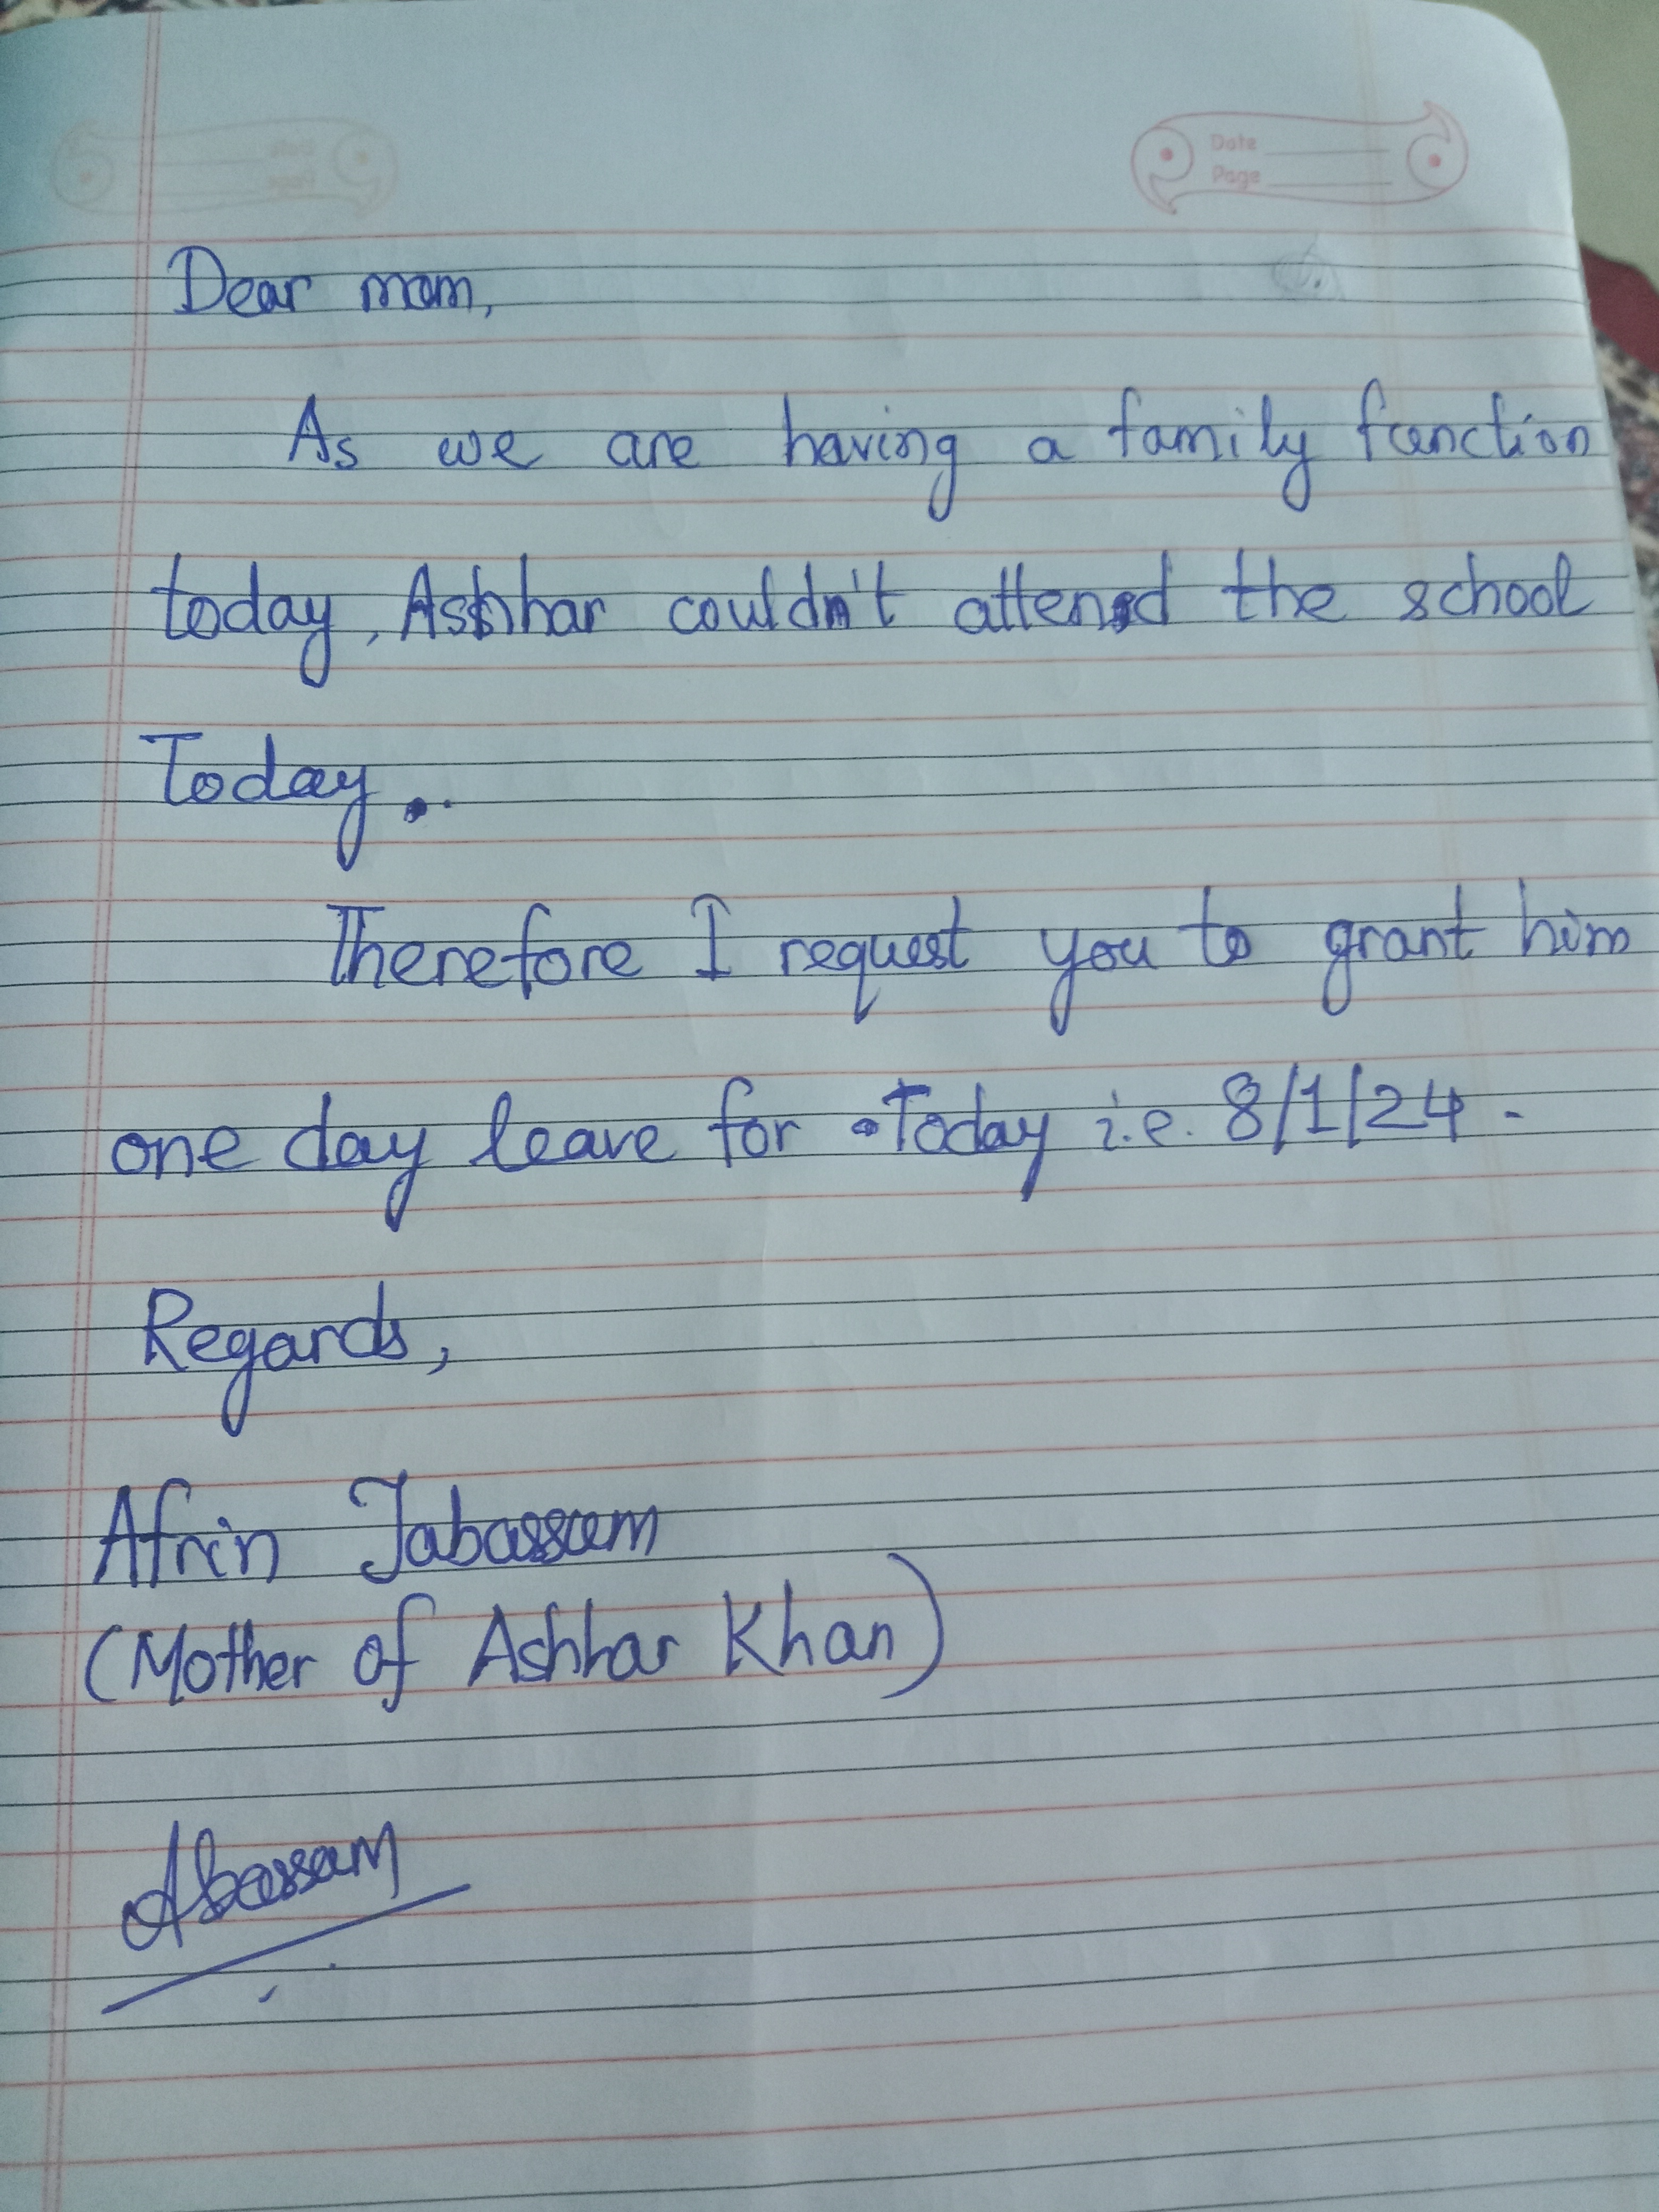 Date
Page
Dear mam,
As we are having a family function
today, Ashhar couldn't attend the school
Today.
Therefore I request you to grant him
one day leave for Today i.e. 8/1/24.
Regards,
Afrin Tabassum
(Mother of Ashhar Khan)